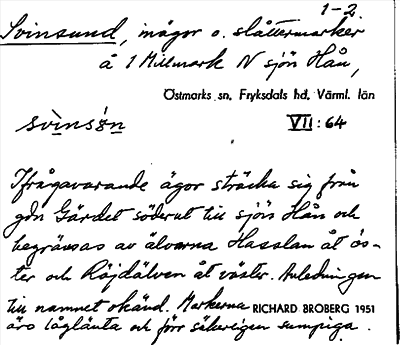 1-2
Svinsund, inägor o. slåttermarker
å 1 Millmark N sjön Hån,
Östmarks sn, Fryksdals hd, Värml. län
svinsøn
VII: 64
Ifrågavarande ägor sträcka sig från
gdn Gärdet söderut till sjön Hån och
begränsas av älvarna Hasslan åt ös-
ter och Röjdälven åt väster. Anledningen
till namnet okänd. Markerna RICHARD BROBERG 1951
äro låglänta och förr säkerligen sumpiga.